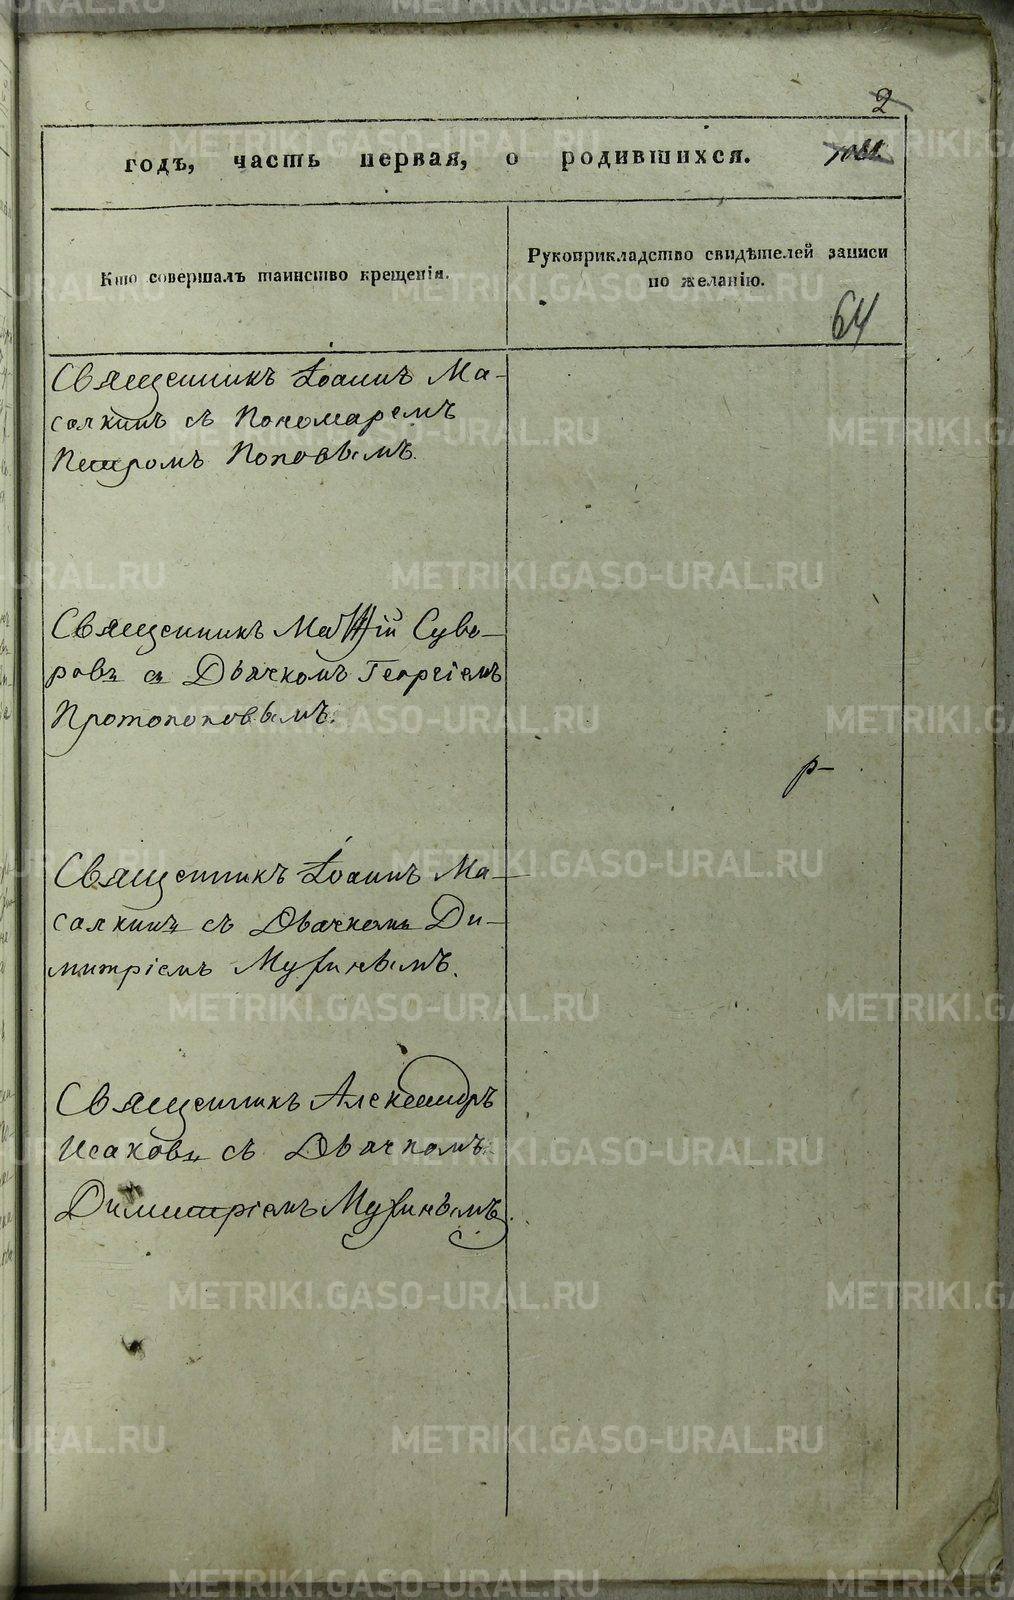 2
годъ, часть первая, о родившихся.
Кто совершалъ таинство крещенія.
Рукоприкладство свидѣтелей записи
по желанію.
64
Священникъ Іоаннъ Ма-
салкинъ съ Пономаремъ
Петромъ Поповымъ.
Священникъ Матѳій Суво-
ровъ съ Дьячкомъ Георгіемъ
Протопоповымъ.
р-
Священникъ Іоаннъ Ма-
салкинъ съ Дьячкомъ Ди-
митріемъ Мухинымъ.
Священникъ Александръ
Исаковъ съ Дьячкомъ
Димитріемъ Мухинымъ.
METRIKI.GASO-URAL.RU